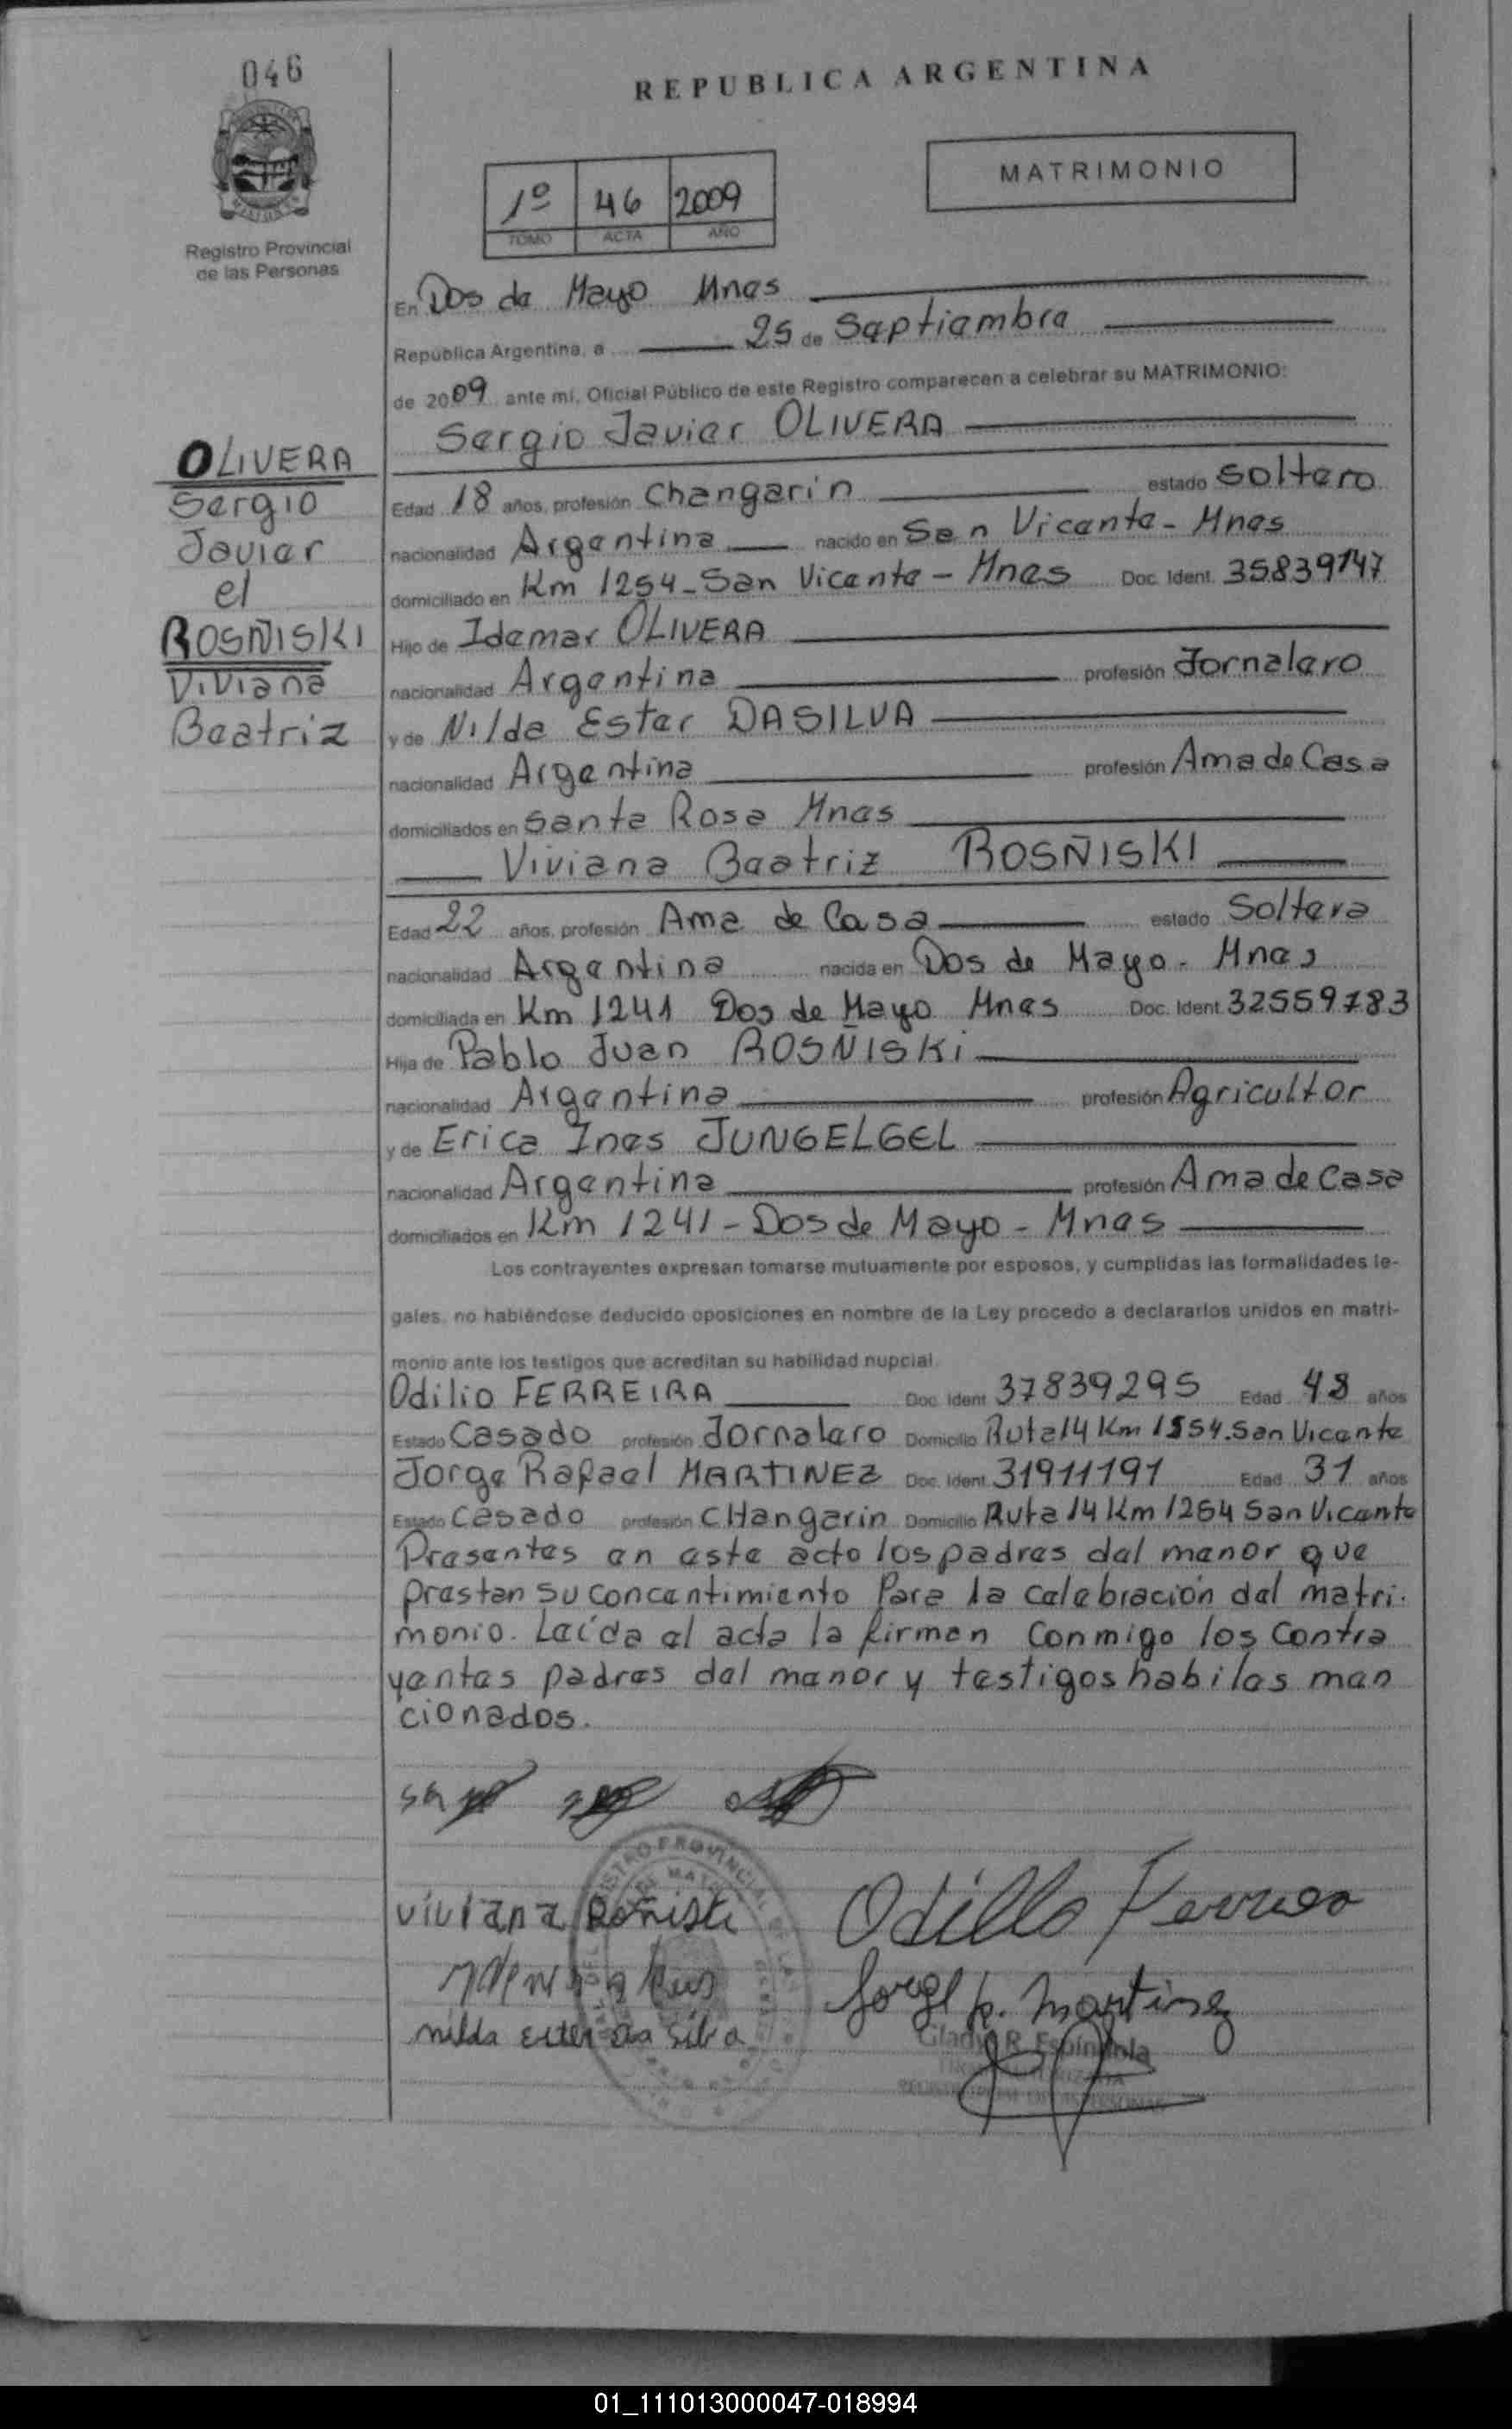 046
REPUBLICA ARGENTINA
MATRIMONIO
1º 46 2009
TOMO ACTA AÑO
Registro Provincial
de las Personas
En Dos de Mayo Mnes
República Argentina, a 25 de Septiembre
de 2009 ante mí, Oficial Público de este Registro comparecen a celebrar su MATRIMONIO:
Sergio Javier OLIVERA
OLIVERA
Sergio
Javier
el
ROSÑISKI
Viviana
Beatriz
Edad 18 años, profesión Changarin estado Soltero
nacionalidad Argentina nacido en San Vicente - Mnes
domiciliado en Km 1254 - San Vicente - Mnes Doc. Ident. 35839147
Hijo de Idemar OLIVERA
nacionalidad Argentina profesión Jornalero
y de Nilda Ester DASILVA
nacionalidad Argentina profesión Ama de Casa
domiciliados en Santa Rosa Mnes
Viviana Beatriz ROSÑISKI
Edad 22 años, profesión Ama de Casa estado Soltera
nacionalidad Argentina nacida en Dos de Mayo - Mnes
domiciliada en Km 1241 Dos de Mayo Mnes Doc. Ident. 32559783
Hija de Pablo Juan ROSÑISKi
nacionalidad Argentina profesión Agricultor
y de Erica Ines JUNGELGEL
nacionalidad Argentina profesión Ama de Casa
domiciliados en Km 1241 - Dos de Mayo - Mnes
Los contrayentes expresan tomarse mutuamente por esposos, y cumplidas las formalidades le-
gales, no habiéndose deducido oposiciones en nombre de la Ley procedo a declararlos unidos en matri-
monio ante los testigos que acreditan su habilidad nupcial.
Odilio FERREIRA Doc. Ident. 37839295 Edad 48 años
Estado Casado profesión Jornalero Domicilio Ruta 14 Km San Vicente
Jorge Rafael MARTINEZ Doc. Ident. 31911191 Edad 31 años
Estado Casado profesión CHangarin Domicilio Ruta 14 Km 1254 San Vicente
Presentes en este acto los padres del menor que
prestan su concentimiento Para la celebración del matri-
monio. Leída el acta la firman conmigo los contra
yentes padres del menor y testigos habiles men
cionados.
Odillo Ferreira
viviana
Jorge R. Martinez
nilda ester da silva
Gladys R. Espíndola
01_111013000047-018994